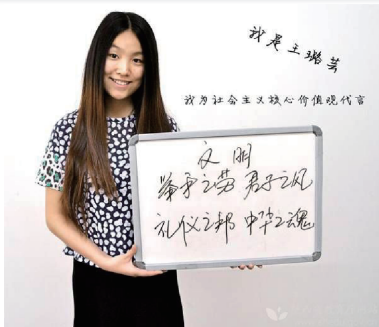 我是王璐芸
我为社会主义核心价值观代言
文明
举手之劳 君子之风
礼仪之邦 中华之魂